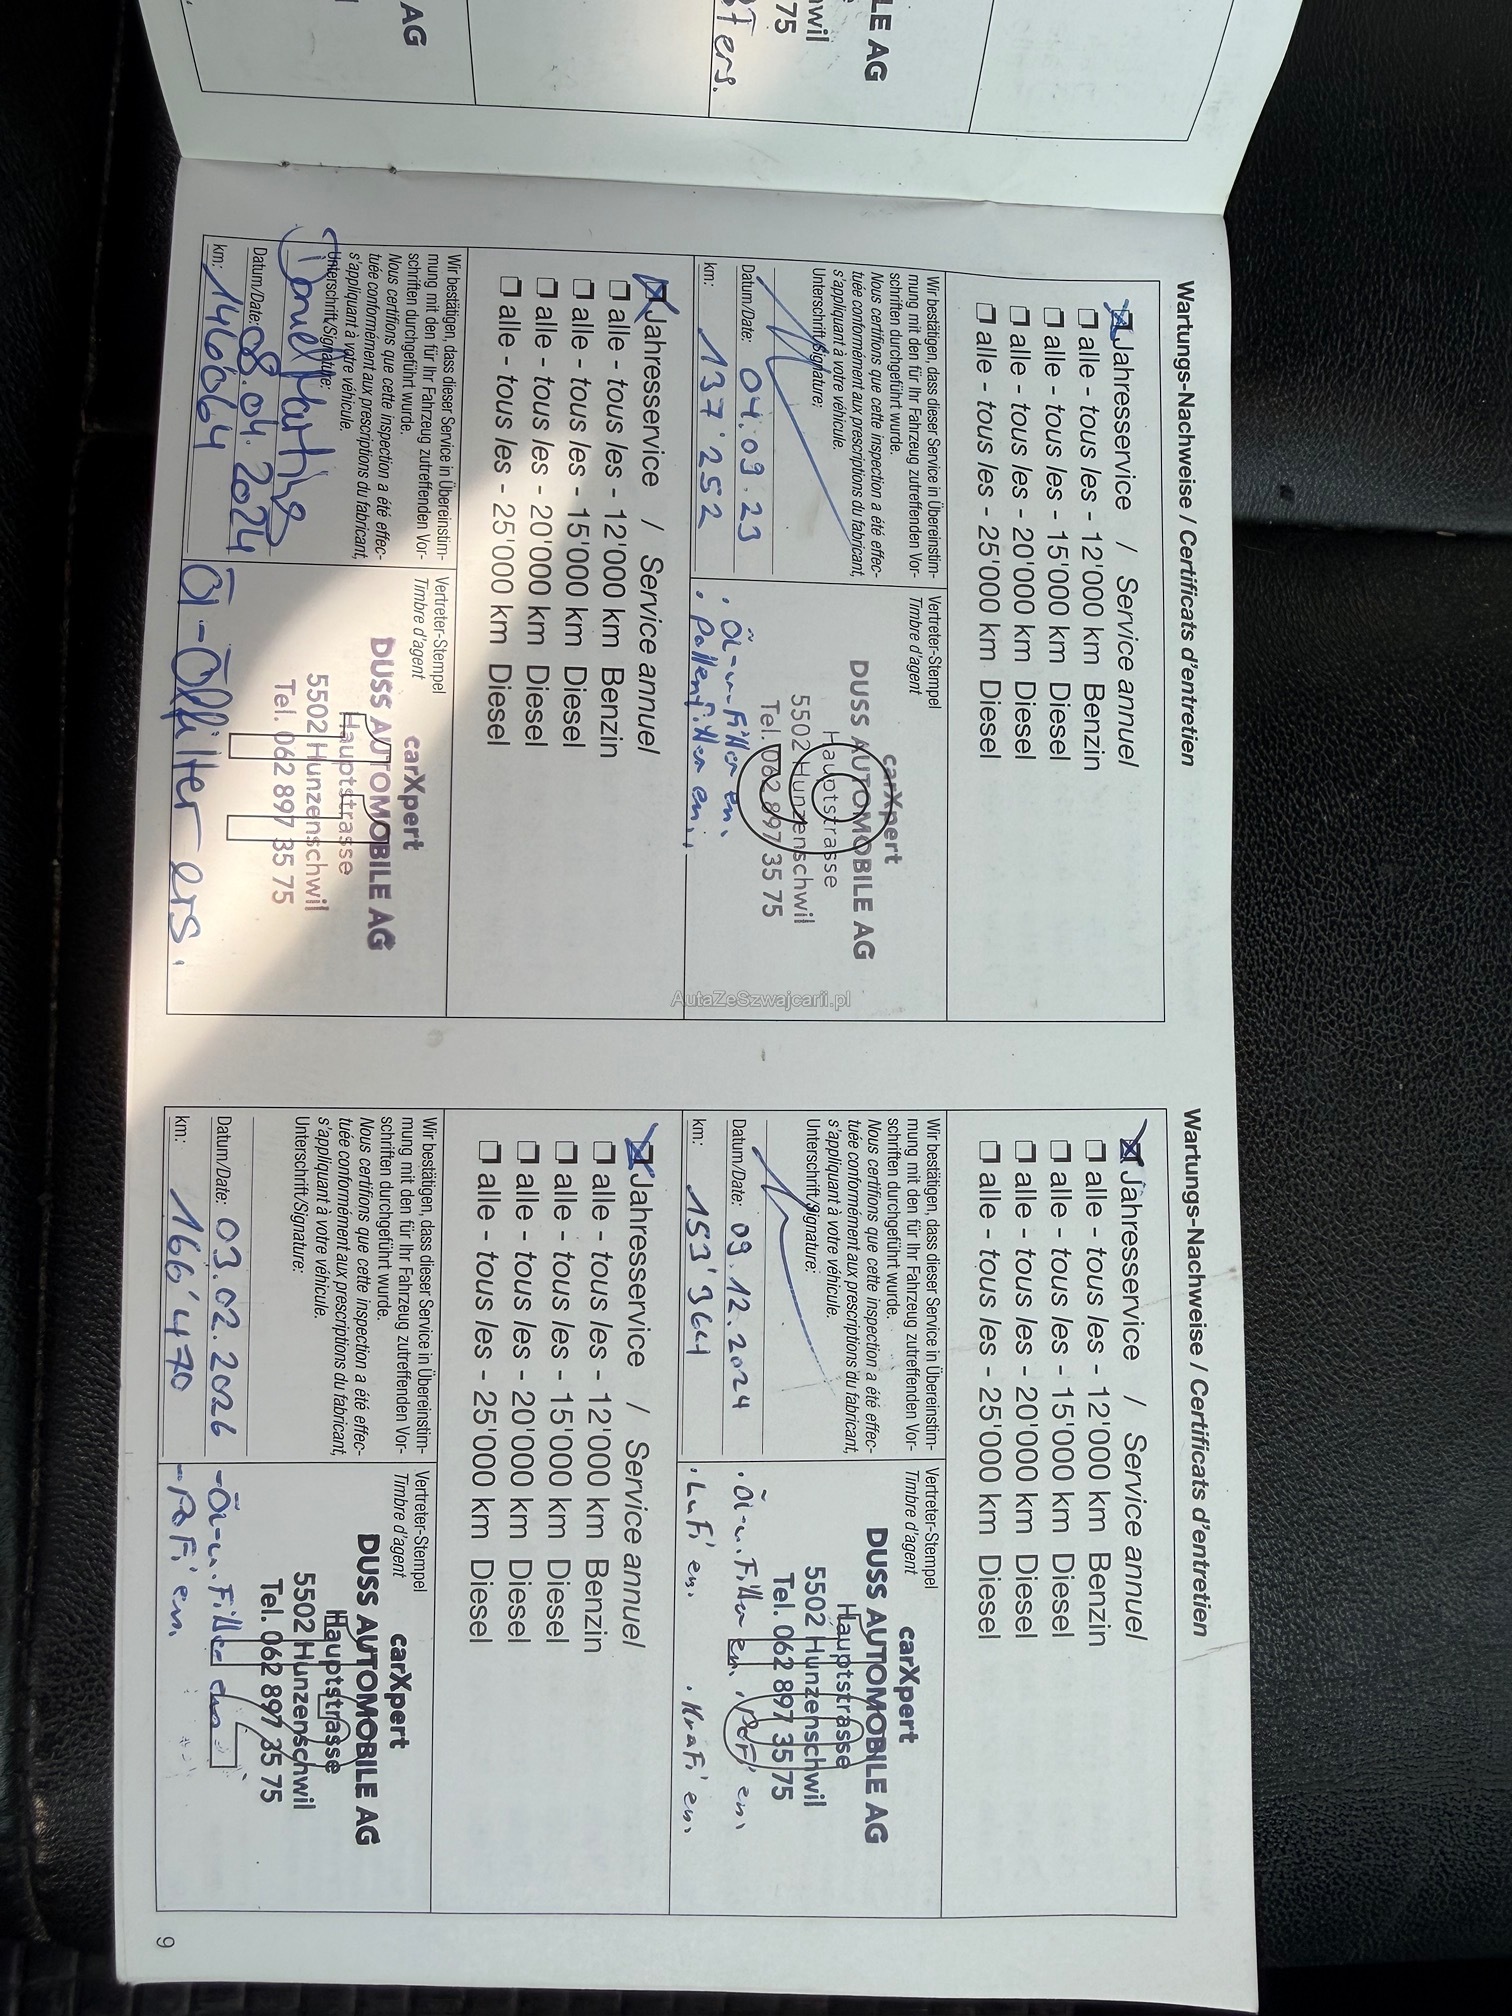 AG
ers.
wil
75
LE AG
Wartungs-Nachweise / Certificats d'entretien
Jahresservice / Service annuel
alle - tous les - 12'000 km Benzin
alle - tous les - 15'000 km Diesel
alle - tous les - 20'000 km Diesel
alle - tous les - 25'000 km Diesel
Wir bestätigen, dass dieser Service in Übereinstim-
mung mit den für Ihr Fahrzeug zutreffenden Vor-
schriften durchgeführt wurde.
Nous certifions que cette inspection a été effec-
tuée conformément aux prescriptions du fabricant,
s'appliquant à votre véhicule.
Unterschrift/Signature:
Datum/Date: 04.09.23
km: 137'252
Vertreter-Stempel
Timbre d'agent
carXpert
DUSS AUTOMOBILE AG
Hauptstrasse
5502 Hunzenschwil
Tel. 062 897 35 75
. Öl-u-Filter en.
. Pollenfilter en.
Jahresservice / Service annuel
alle - tous les - 12'000 km Benzin
alle - tous les - 15'000 km Diesel
alle - tous les - 20'000 km Diesel
alle - tous les - 25'000 km Diesel
Wir bestätigen, dass dieser Service in Übereinstim-
mung mit den für Ihr Fahrzeug zutreffenden Vor-
schriften durchgeführt wurde.
Nous certifions que cette inspection a été effec-
tuée conformément aux prescriptions du fabricant,
s'appliquant à votre véhicule.
Unterschrift/Signature:
Datum/Date: 08.04.2024
km: 146064
Vertreter-Stempel
Timbre d'agent
carXpert
DUSS AUTOMOBILE AG
Hauptstrasse
5502 Hunzenschwil
Tel. 062 897 35 75
Öl-Ölfilter ers.
AutaZeSzwajcarii.pl
Wartungs-Nachweise / Certificats d'entretien
Jahresservice / Service annuel
alle - tous les - 12'000 km Benzin
alle - tous les - 15'000 km Diesel
alle - tous les - 20'000 km Diesel
alle - tous les - 25'000 km Diesel
Wir bestätigen, dass dieser Service in Übereinstim-
mung mit den für Ihr Fahrzeug zutreffenden Vor-
schriften durchgeführt wurde.
Nous certifions que cette inspection a été effec-
tuée conformément aux prescriptions du fabricant,
s'appliquant à votre véhicule.
Unterschrift/Signature:
Datum/Date: 09.12.2024
km: 153'964
Vertreter-Stempel
Timbre d'agent
carXpert
DUSS AUTOMOBILE AG
Hauptstrasse
5502 Hunzenschwil
Tel. 062 897 35 75
. Öl-u.Filter en. . PoFi en.
. LuFi en. . KraFi en.
Jahresservice / Service annuel
alle - tous les - 12'000 km Benzin
alle - tous les - 15'000 km Diesel
alle - tous les - 20'000 km Diesel
alle - tous les - 25'000 km Diesel
Wir bestätigen, dass dieser Service in Übereinstim-
mung mit den für Ihr Fahrzeug zutreffenden Vor-
schriften durchgeführt wurde.
Nous certifions que cette inspection a été effec-
tuée conformément aux prescriptions du fabricant,
s'appliquant à votre véhicule.
Unterschrift/Signature:
Datum/Date: 03.02.2026
km: 166'470
Vertreter-Stempel
Timbre d'agent
carXpert
DUSS AUTOMOBILE AG
Hauptstrasse
5502 Hunzenschwil
Tel. 062 897 35 75
- Öl-u.Filter
- PoFi en.
9